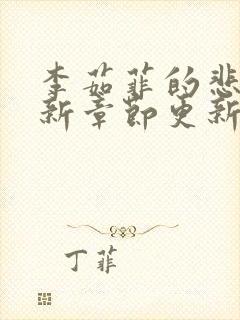 李茹菲的悲
新章節更新
丁菲